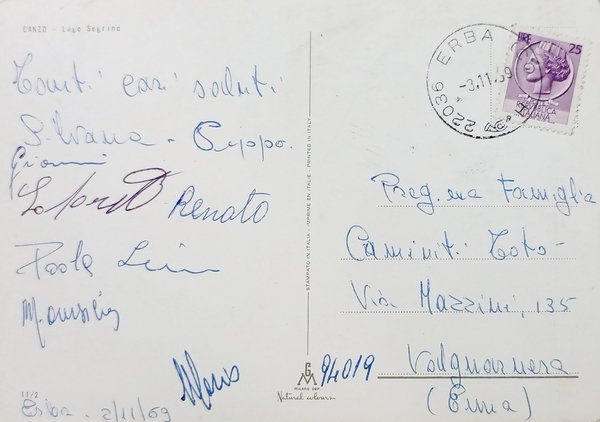 CANZO - Lago Segrino
Tanti cari saluti
Silvana - Pippo.
Gianni
Renato
Paola
Mario
11/2
Erba - 2/11/69
STAMPATO IN ITALIA - IMPRIMÉ EN ITALIE - PRINTED IN ITALY
G M
MILANO DEP.
Natural colours
22036 ERBA (CO)
-3.11.69
LIRE 25
ITALIANA
Preg.ma Famiglia
Caminiti Totò -
Via Mazzini, 135
94019 Valguarnera
(Enna)